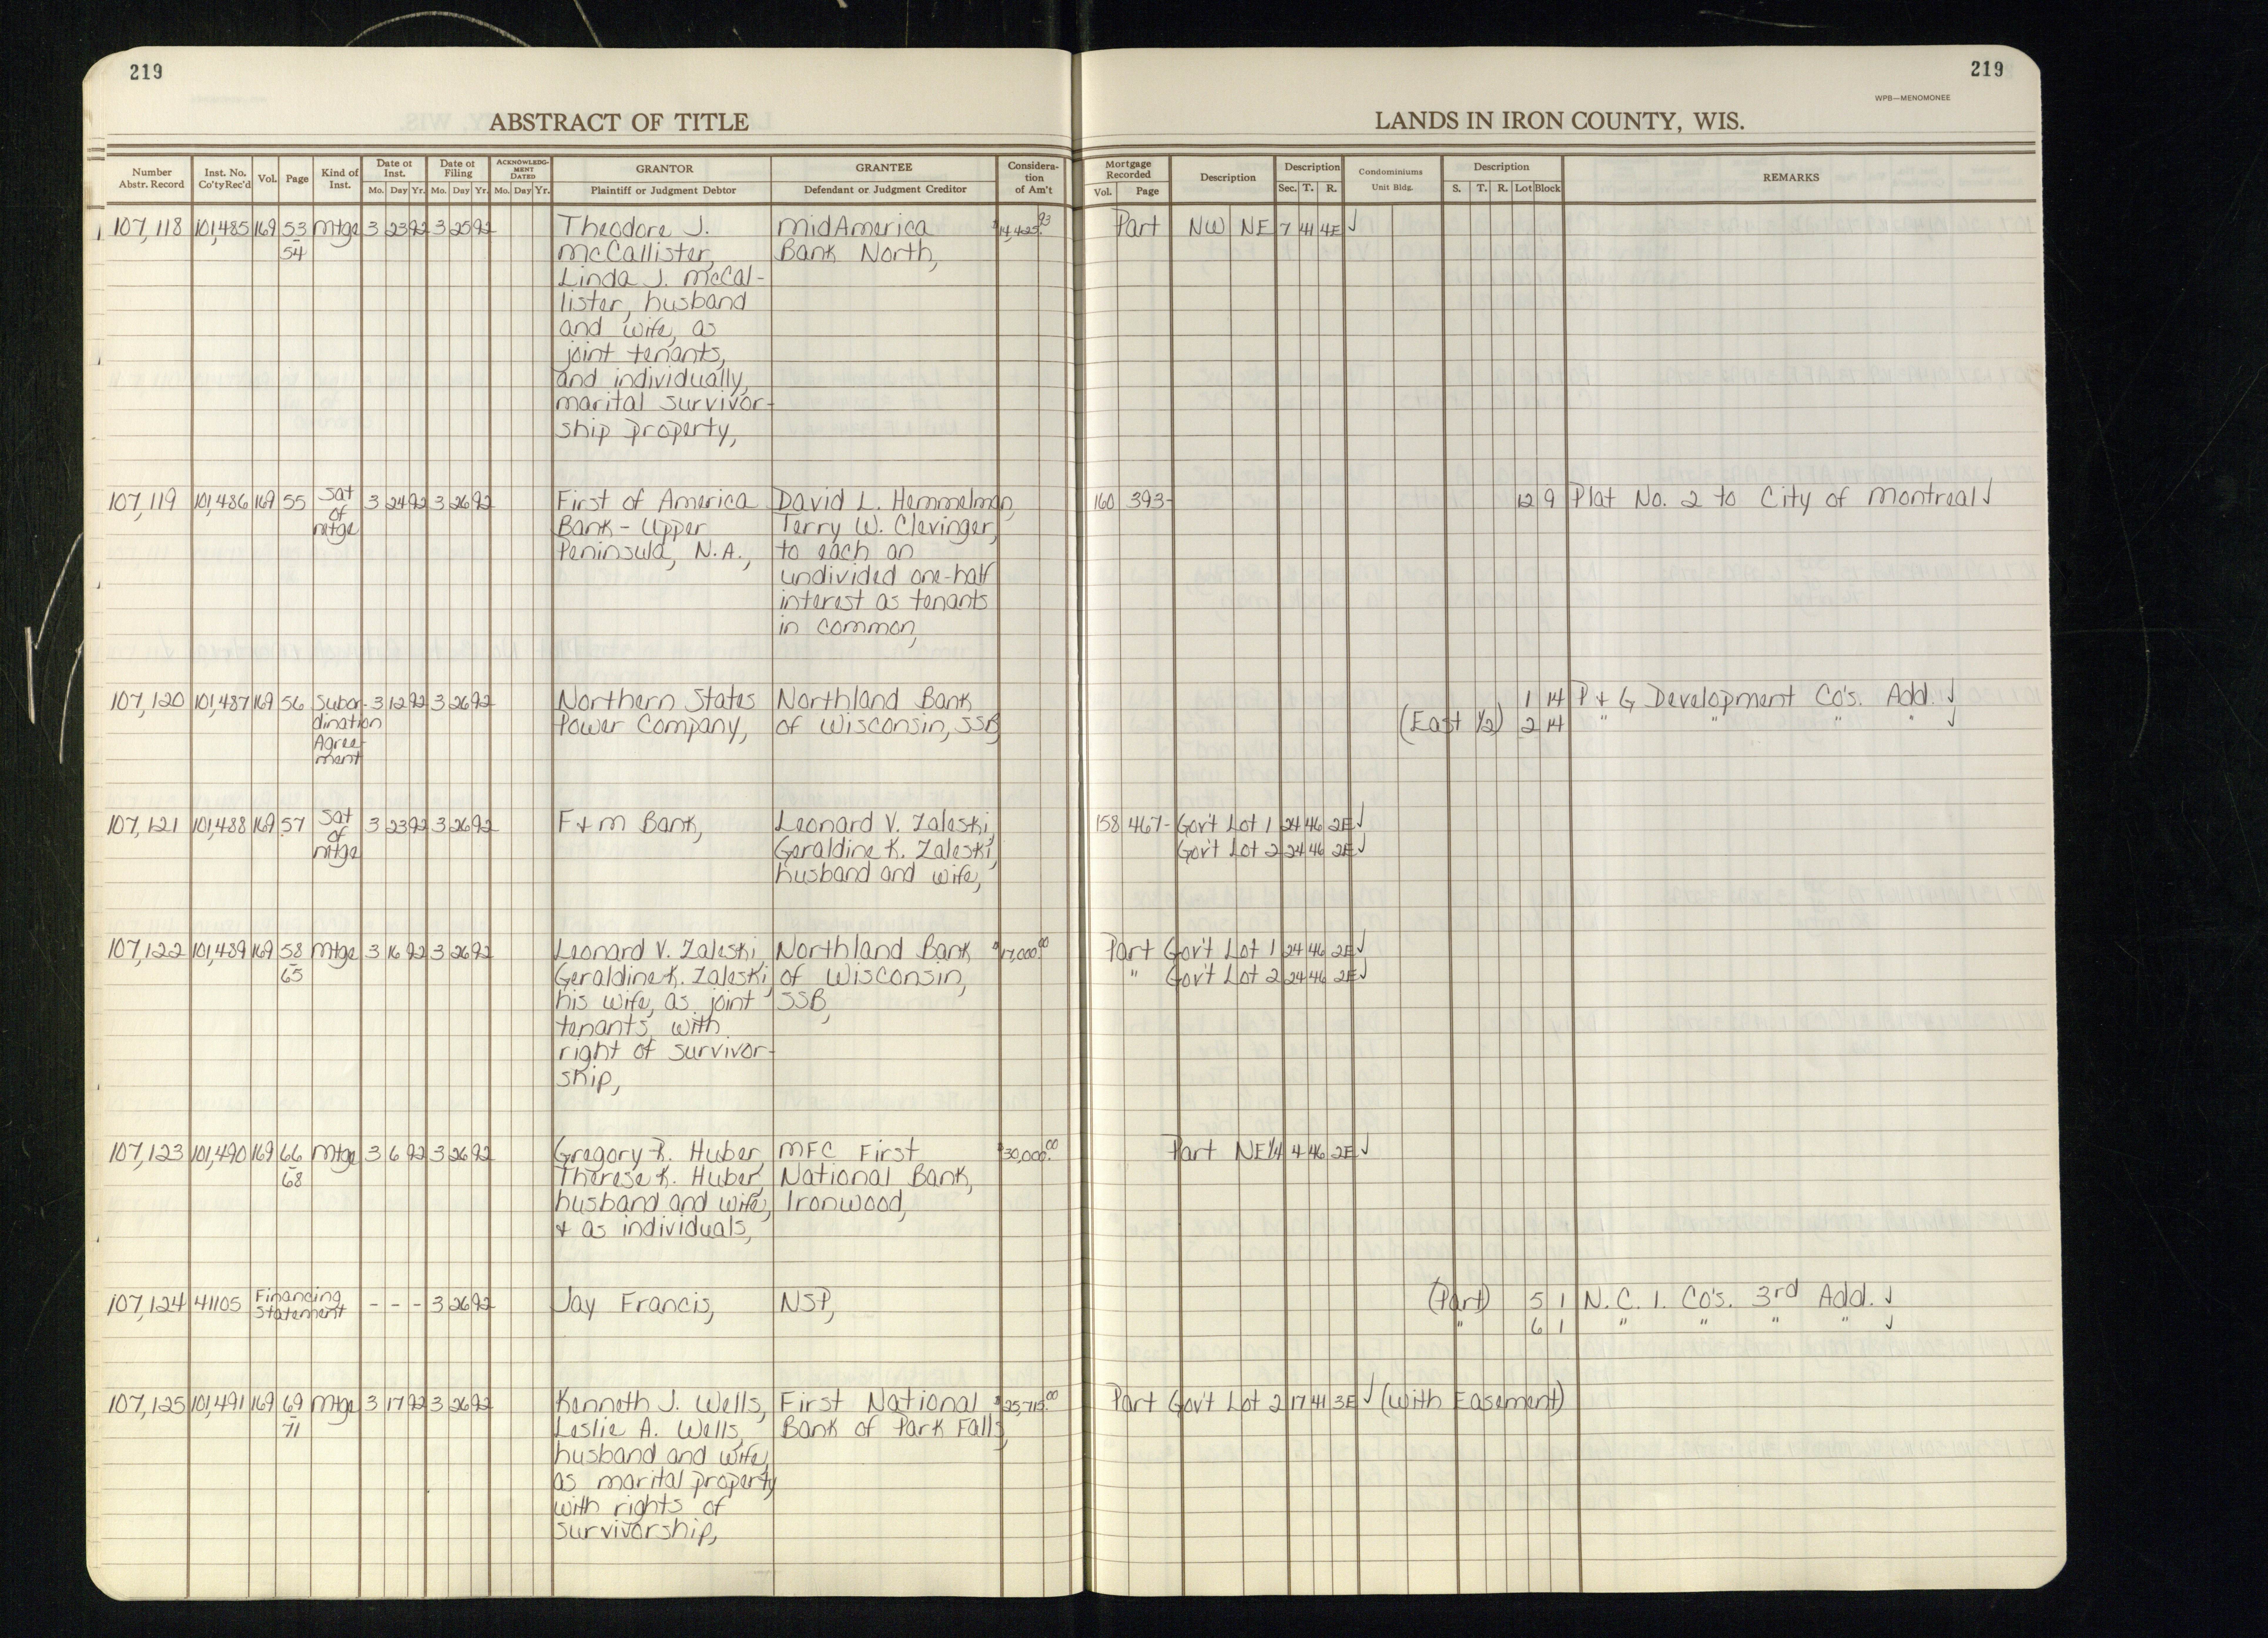 219
219
WPB—MENOMONEE
ABSTRACT OF TITLE
LANDS IN IRON COUNTY, WIS.
Number Abstr. Record | Inst. No. Co'ty Rec'd | Vol. | Page | Kind of Inst. | Date of Inst. Mo. Day Yr. | Date of Filing Mo. Day Yr. | ACKNOWLEDGMENT DATED Mo. Day Yr. | GRANTOR Plaintiff or Judgment Debtor | GRANTEE Defendant or Judgment Creditor | Consideration of Am't | Mortgage Recorded Vol. Page | Description | Description Sec. T. R. | Condominiums Unit Bldg. | Description S. T. R. Lot Block | REMARKS
107,118 101,485 169 53 Mtge 3 23 92 3 25 92 Theodore J. MidAmerica $14,425.93 Part NW NE 7 41 4E ✓
54 McCallister, Bank North,
Linda J. McCal-
lister, husband
and wife, as
joint tenants,
and individually,
marital survivor-
ship property,
107,119 101,486 169 55 Sat 3 24 92 3 26 92 First of America David L. Hemmelman, 160 393- 12 9 Plat No. 2 to City of Montreal ✓
of Bank - Upper Terry W. Clevinger,
mtge Peninsula, N.A., to each an
undivided one-half
interest as tenants
in common,
107,120 101,487 169 56 Subor- 3 12 92 3 26 92 Northern States Northland Bank 1 14 P & G Development Co's. Add. ✓
dination Power Company, of Wisconsin, SSB (East 1/2) 2 14 " " " " ✓
Agree-
ment
107,121 101,488 169 57 Sat 3 23 92 3 26 92 F & M Bank, Leonard V. Zaleski, 158 467- Gov't Lot 1 24 46 2E ✓
of Geraldine K. Zaleski, Gov't Lot 2 24 46 2E ✓
mtge husband and wife,
107,122 101,489 169 58 Mtge 3 16 92 3 26 92 Leonard V. Zaleski, Northland Bank $17,000.00 Part Gov't Lot 1 24 46 2E ✓
65 Geraldine K. Zaleski, of Wisconsin, " Gov't Lot 2 24 46 2E ✓
his wife, as joint SSB,
tenants with
right of survivor-
ship,
107,123 101,490 169 66 Mtge 3 6 92 3 26 92 Gregory P. Huber, MFC First $30,000.00 Part NE1/4 4 46 2E ✓
68 Therese K. Huber, National Bank,
husband and wife, Ironwood,
& as individuals,
107,124 41105 Financing - - - 3 26 92 Jay Francis, NSP, (Part) 5 1 N. C. I. Co's. 3rd Add. ✓
Statement " 6 1 " " " " ✓
107,125 101,491 169 69 Mtge 3 17 92 3 26 92 Kenneth J. Wells, First National Part Gov't Lot 2 17 41 3E ✓ (with Easement)
71 Leslie A. Wells, Bank of Park Falls,
husband and wife,
as marital property
with rights of
survivorship,